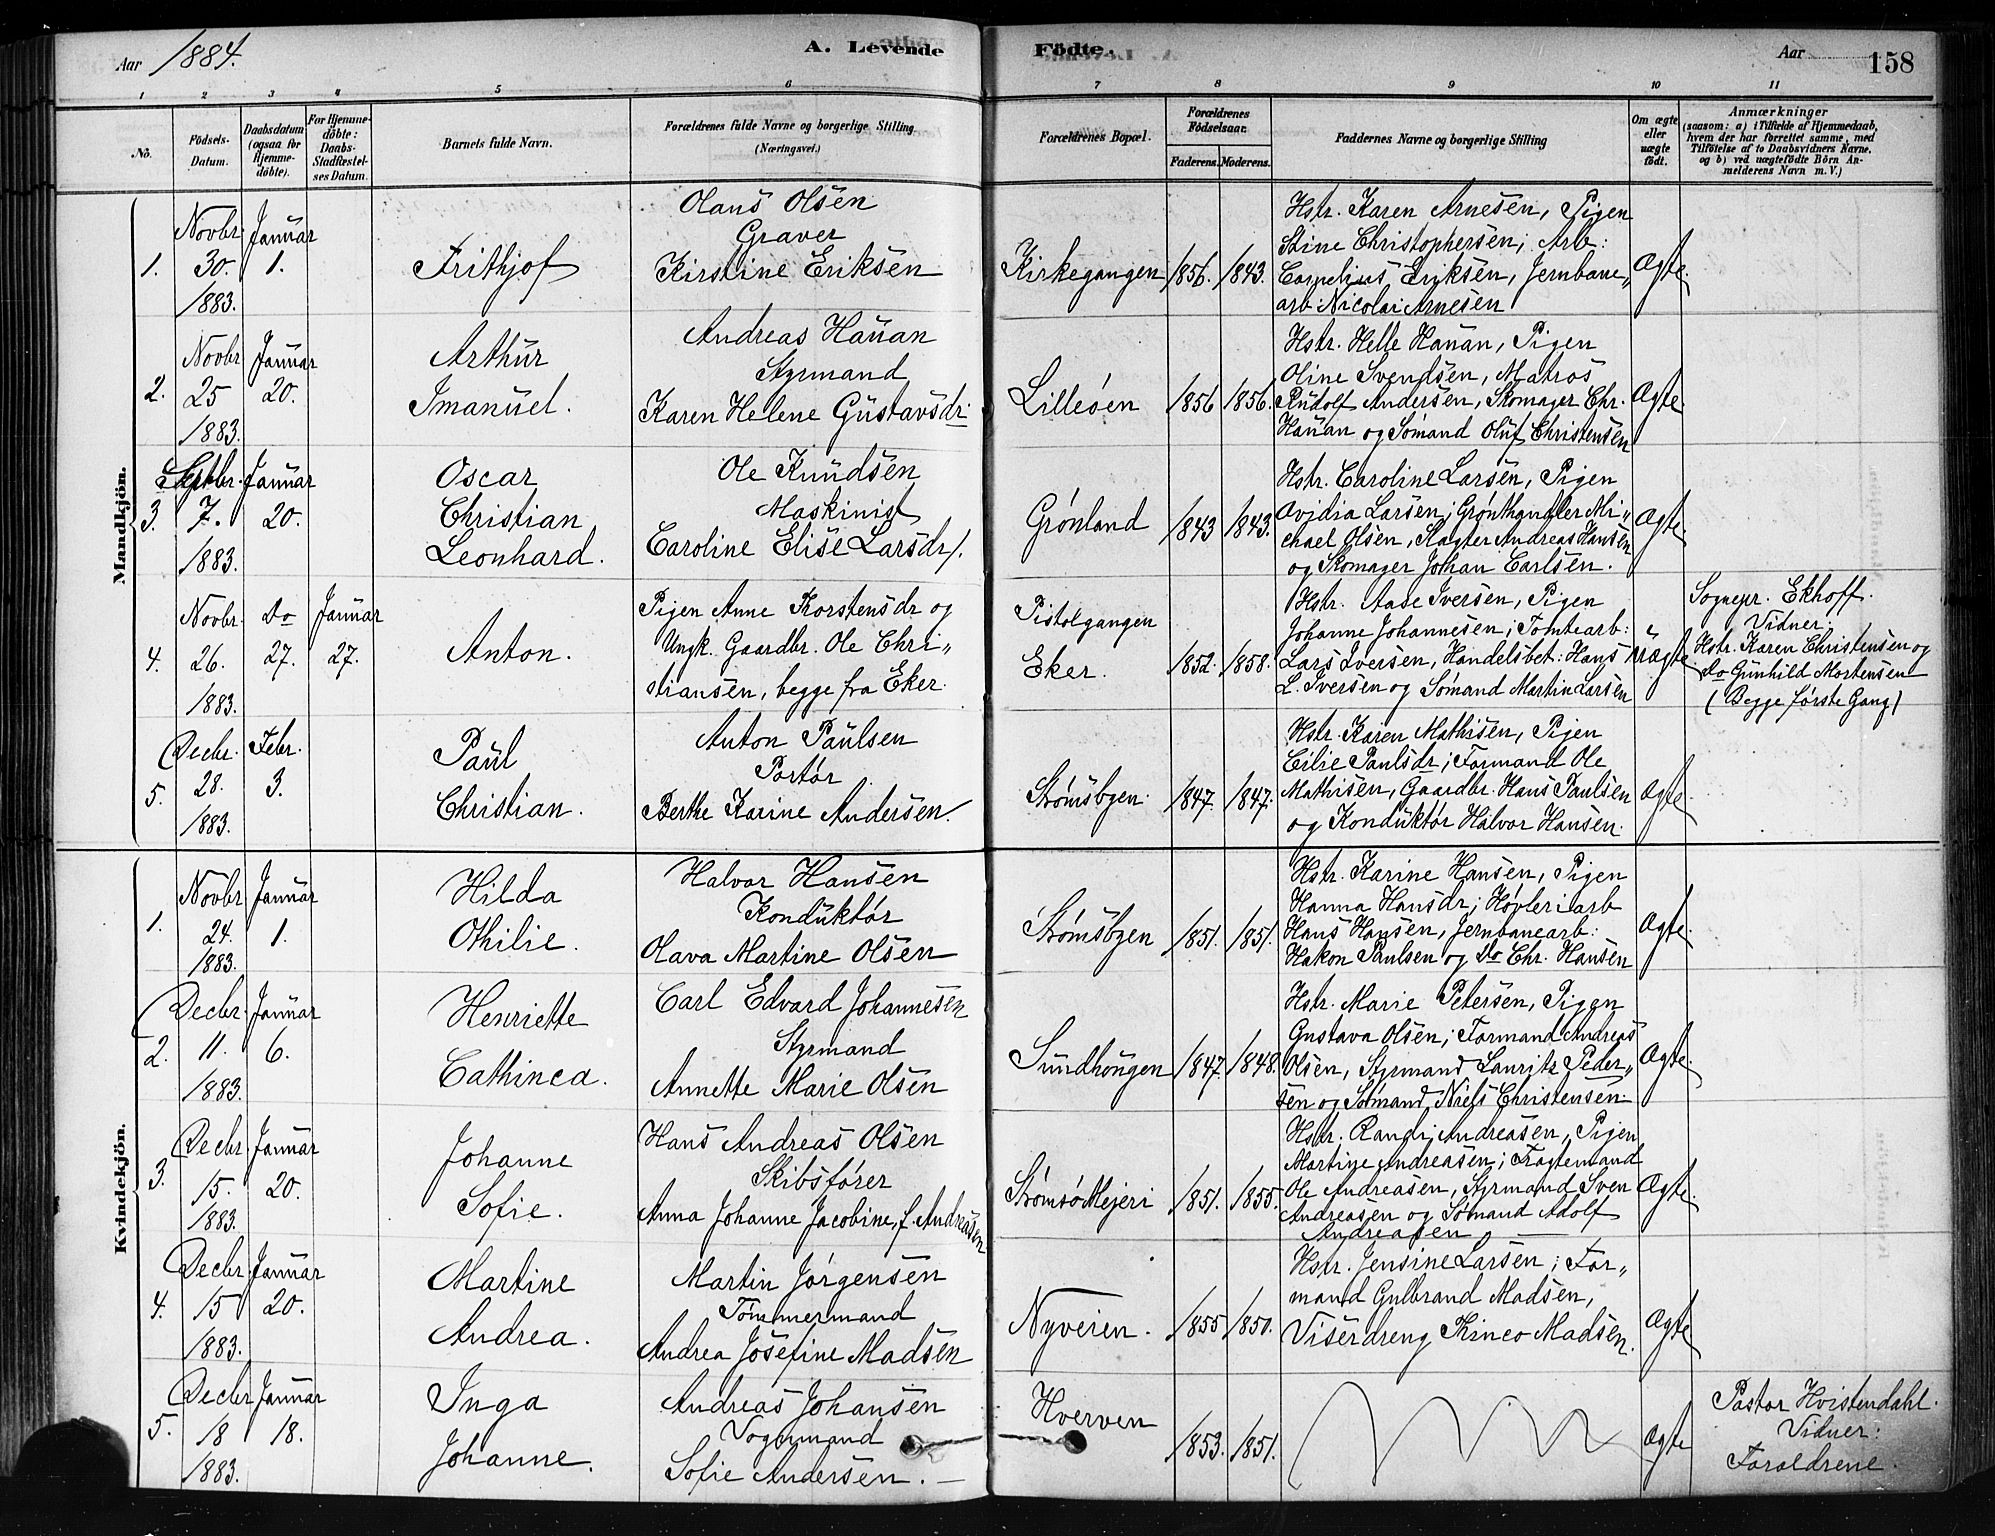 Aar 1884.
A. Levende
Födte.
Aar
158
1 2 3 4 5 6 7 8 9 10 11
No.
Födsels-
Datum.
Daabsdatum
(ogsaa for
Hjemme-
döbte).
For Hjemme-
döbte:
Daabs-
Stadfæstel-
ses Datum.
Barnets fulde Navn.
Forældrenes fulde Navne og borgerlige Stilling.
(Næringsvei.)
Forældrenes Bopæl.
Forældrenes
Födselsaar.
Faderens.
Moderens.
Faddernes Navne og borgerlige Stilling
Om ægte
eller
uægte
født.
Anmærkninger
(saasom: a) i Tilfælde af Hjemmedaab,
hvem der har forrettet samme, med
Tilföielse af to Daabsvidners Navne,
og b) ved uægtefödte Börn An-
melderens Navn m. V.)
Mandkjön.
1.
Novbr.
30.
1883.
Januar
1.
Frithjof
Olaus Olsen
Graver
Kirstine Eriksen
Kirkegangen
1856.
1843.
Hstr. Karen Arnesen, Pigen
Stine Christophersen; Arb:
Cornelius Eriksen, Jernbane„
arb. Nicolai Arnesen
Ægte.
2.
Novbr
25
1883.
Januar
20.
Arthur
Imanuel.
Andreas Hauan
Styrmand
Karen Helene Gustavsdr.
Lilleöen
1856
1856.
Hstr. Helle Hauan, Pigen
Oline Svendsen, Matros
Rudolf Andersen, Skomager Chr.
Hauan og Sömand Oluf Christensen
Ægte.
3.
Septbr.
7.
1883.
Januar
20.
Oscar
Christian
Leonhard.
Ole Knudsen
Maskinist
Caroline Elise Larsdr.
Grönland
1843
1843.
Hstr. Caroline Larsen, Pigen
Ovidia Larsen; Grönthandler Mi„
chael Olsen, Slagter Andreas Hansen
og Skomager Johan Carlsen.
Ægte
4.
Novbr.
26.
1883.
Do
27.
Januar
27.
Anton.
Pigen Anne Thorstensdr og
Ungk. Gaardbr. Ole Chri„
stiansen, begge fra Eker.
Pistolgangen
Eker.
1852.
1858.
Hstr. Aase Iversen, Pigen
Johanne Johannesen; Tomtearb:
Lars Iversen, Handelsbet: Hans
L. Iversen og Sömand Martin Larsen
Uægte.
Sognepr. Ekhoff.
Vidner:
Hstr. Karen Christensen og
do Gunhild Mortensen
(Begge første Gang)
5.
Decbr.
28.
1883.
Febr.
3.
Paul
Christian.
Anton Paulsen
Portör
Berthe Karine Andersen.
Strömsbyen.
1847.
1847.
Hstr. Karen Mathisen, Pigen
Cilie Paulsdr; Formand Ole
Mathisen, Gaardbr. Hans Paulsen
og Konduktör Halvor Hansen.
Ægte.
Kvindekjön.
1.
Novbr
24.
1883.
Januar
1.
Hilda
Othilie.
Halvor Hansen
Konduktör
Olava Martine Olsen
Strömsbyen
1851.
1851.
Hstr. Karine Hansen, Pigen
Hanna Hansdr; Høvleriarb
Hans Hansen, Jernbanearb:
Hakon Paulsen og Do Chr. Hansen
Ægte.
2.
Decbr.
11.
1883.
Januar
6.
Henriette
Cathinca.
Carl Edvard Johannesen
Styrmand
Annette Marie Olsen
Sundhongen
1847.
1848.
Hstr. Marie Petersen, Pigen
Gustava Olsen; Formand Andreas
Olsen, Styrmand Laurits Peder„
sen og Sömand Niels Christensen.
Ægte.
3.
Decbr.
15.
1883.
Januar
20.
Johanne
Sofie.
Hans Andreas Olsen
Skibsförer
Anna Johanne Jacobine, f. Andreasen
Strömsö Mejeri
1851.
1855.
Hstr. Randi Andreasen, Pigen
Martine Andreasen; Fragtemand
Ole Andreasen, Styrmand Sven
Andreasen og Sömand Adolf
Andreasen
Ægte.
4.
Decbr.
15
1883.
Januar
20.
Martine
Andrea.
Martin Jörgensen
Tömmermand
Andrea Josefine Madsen
Nyveien.
1855
1850.
Hstr. Jensine Larsen; For„
mand Gulbrand Madsen,
Viserdreng Thinco Madsen.
Ægte
5.
Decbr
18
1883.
Januar
18.
Inga
Johanne.
Andreas Johansen
Vognmand
Sofie Andersen.
Hverven
1853.
1851.
Ægte
Pastor Hvistendahl.
Vidner:
Forældrene.